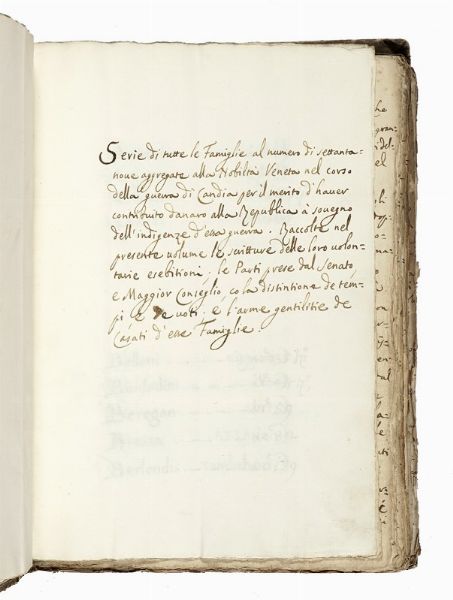 Serie di tutte le Famiglie al numero di settanta-
noue aggregate alla Nobiltà Veneta nel corso
della guerra di Candia per il merito d'hauer
contributo danaro alla Republica à souegno
dell'indigenze d'essa guerra. Raccolte nel
presente volume le scritture delle loro uolon-
tarie esebitioni. le Parti prese dal Senato
e Maggior Conseglio, co la distintione de tém-
pi e de uoti. e l'arme gentilitie de
Casati d'esse Famiglie.